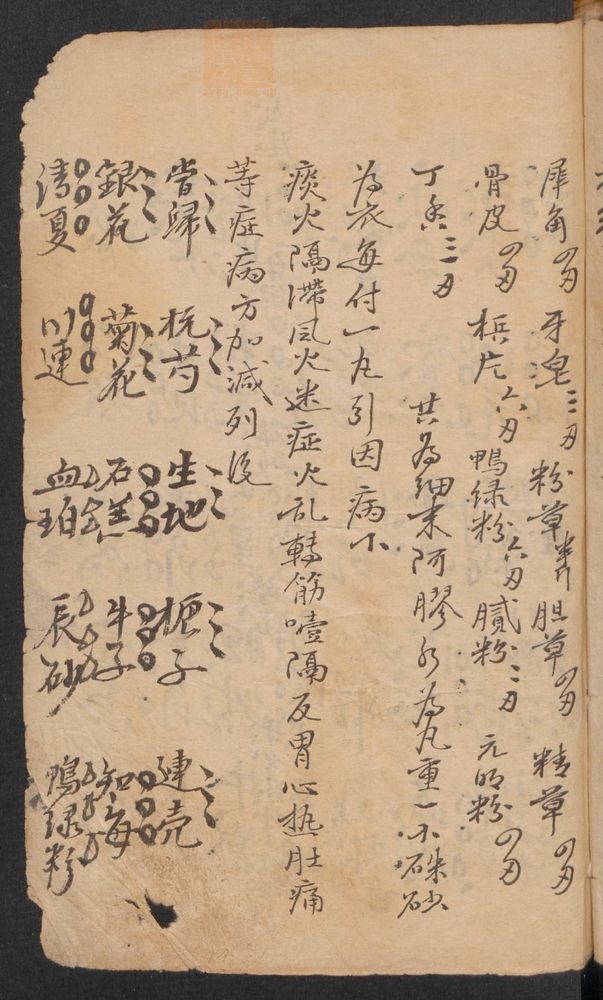 犀角 牙皂三刃 粉草 胆草 精草
骨皮 梹片六刃 鴨绿粉六刃 膩粉二刃 元明粉
丁香三刃 共為細末阿膠水為丸重一个硃砂
為衣每付一丸引因病下
痰火隔滯风火迷症火乱轉筋噎隔反胃心热肚痛
等症病方加减列後
當歸 杭芍 生地 梔子 連壳
銀花 菊花 石羔 牛子 知母
清夏 川連 血珀 辰砂 鴨绿粉